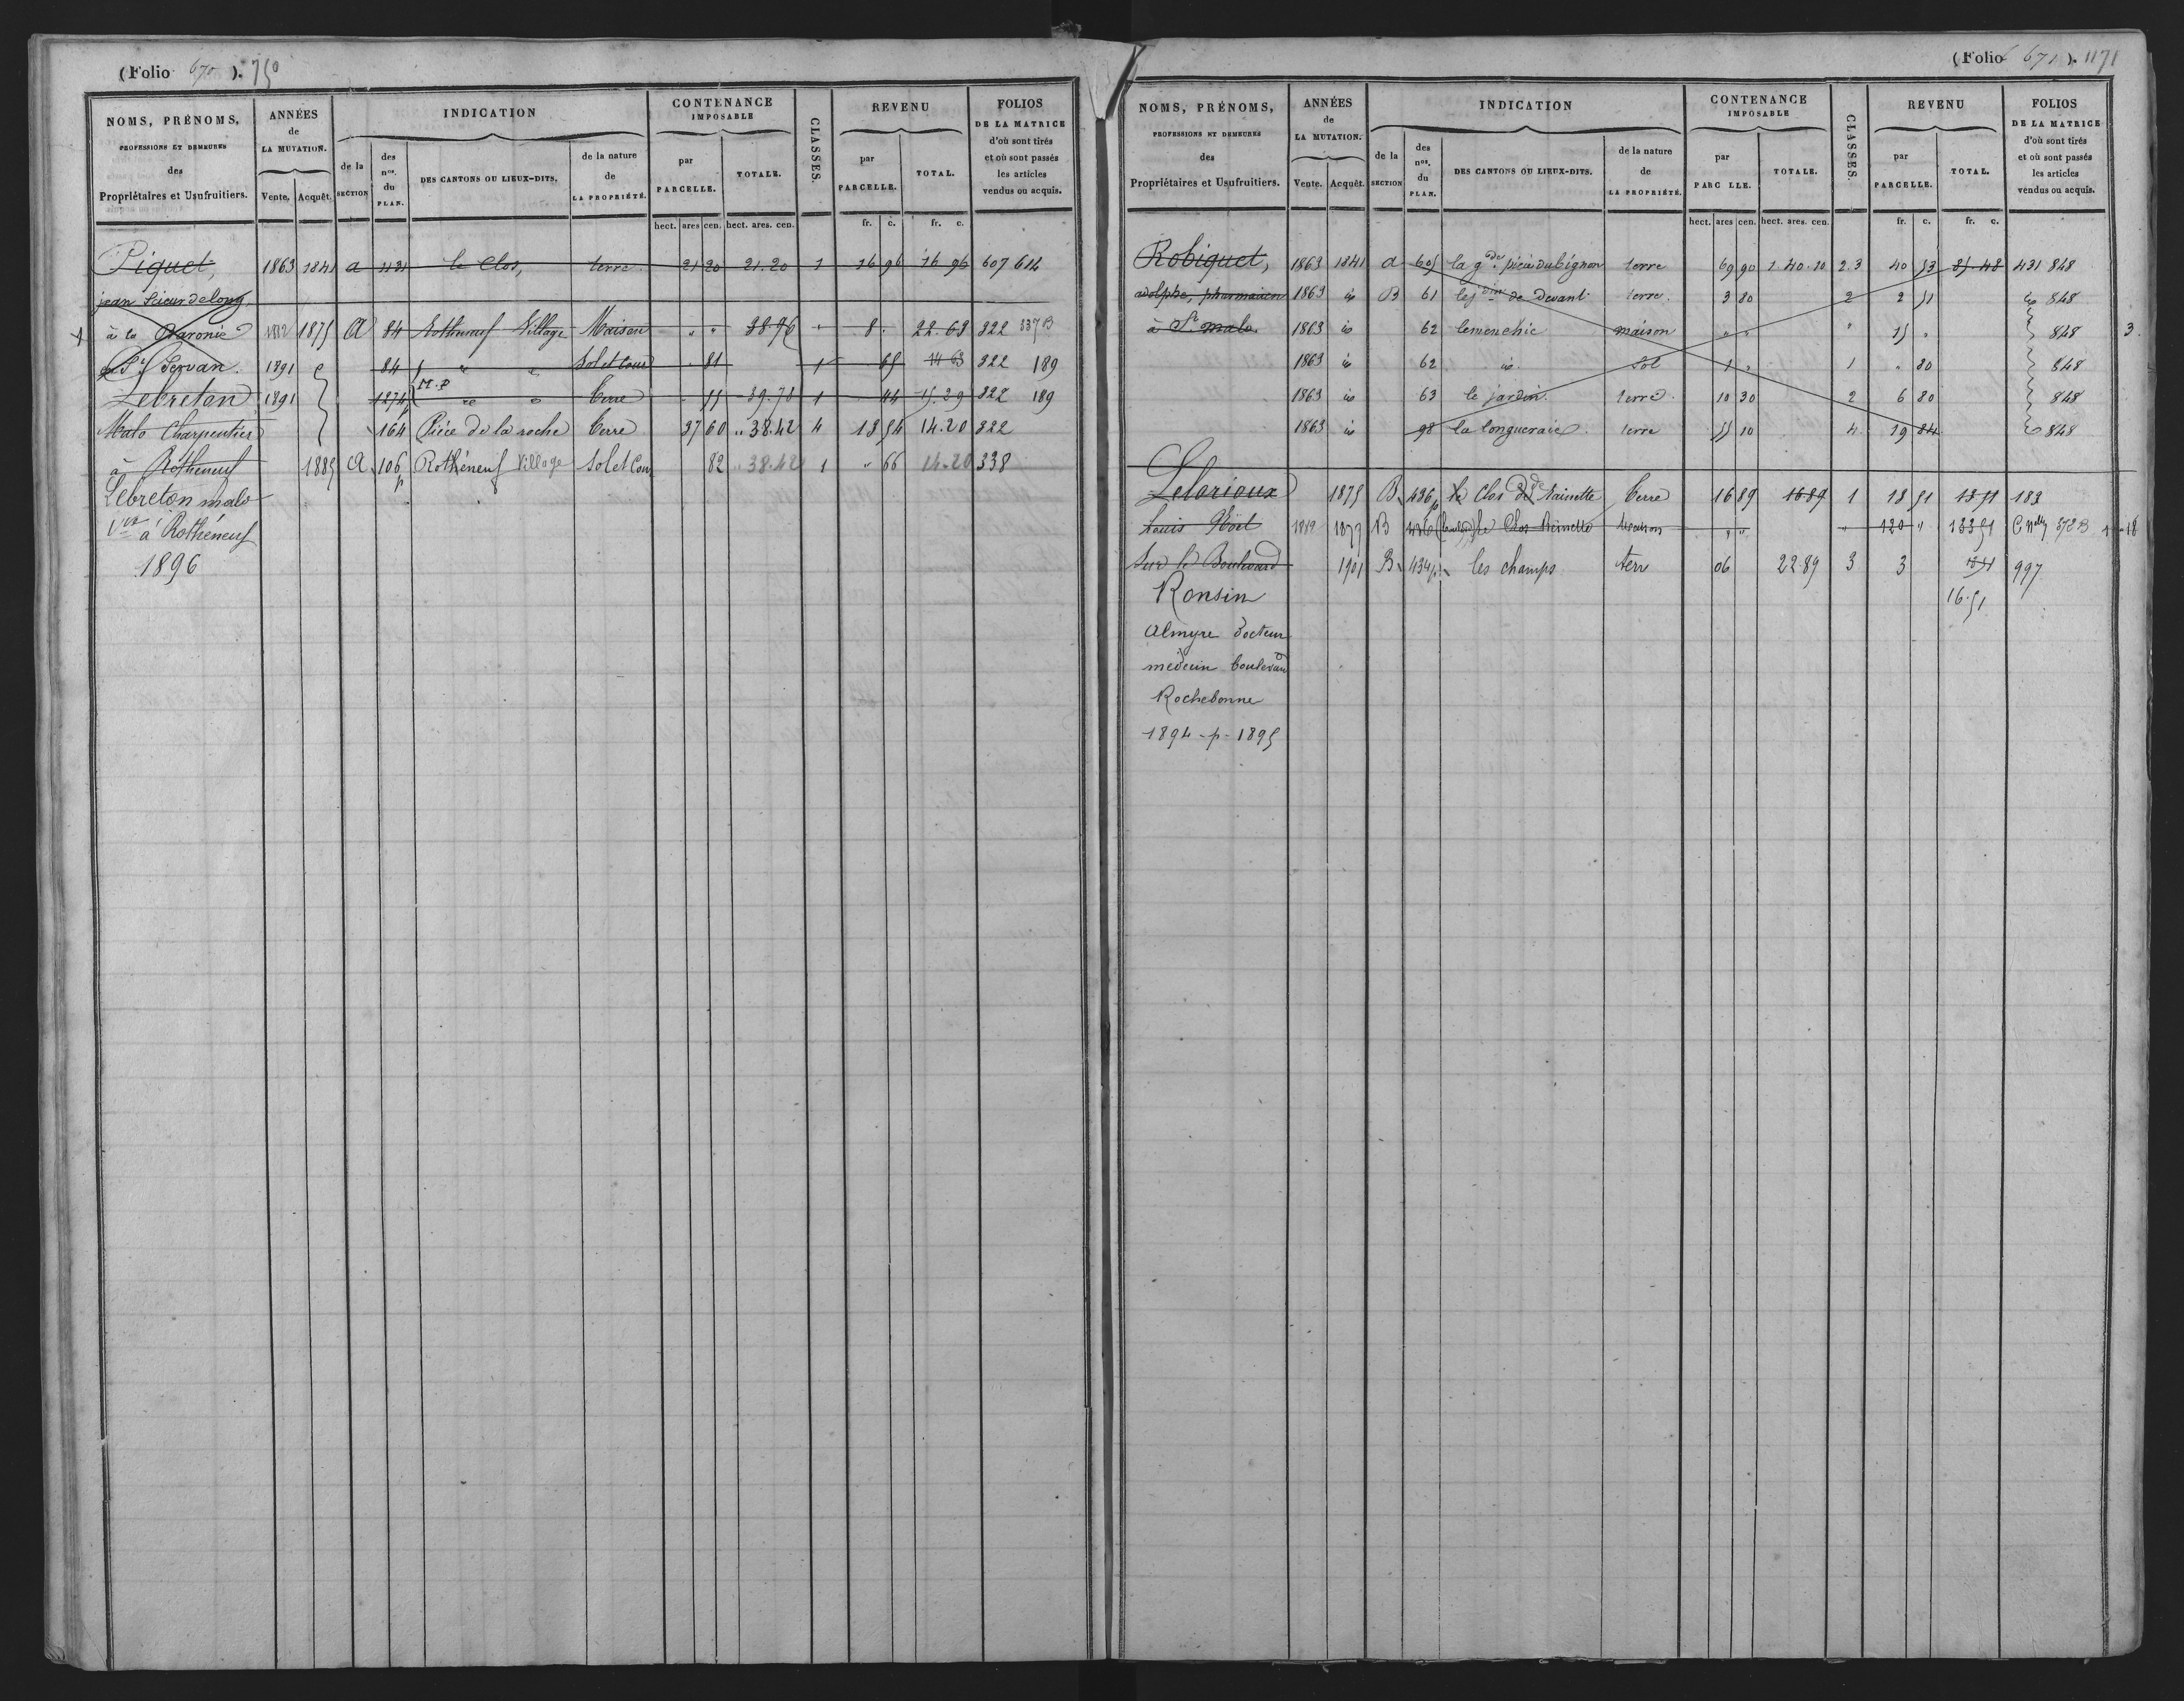 (Folio 670). 750
NOMS, PRÉNOMS, PROFESSIONS ET DEMEURES des Propriétaires et Usufruitiers.
ANNÉES de LA MUTATION. Vente. Acquêt.
INDICATION de la SECTION des nos. du PLAN. DES CANTONS OU LIEUX-DITS. de la nature de LA PROPRIÉTÉ.
CONTENANCE IMPOSABLE par PARCELLE. TOTALE. hect. ares cen. hect. ares. cen.
CLASSES.
REVENU par PARCELLE. TOTAL. fr. c. fr. c.
FOLIOS DE LA MATRICE d'où sont tirés et où sont passés les articles vendus ou acquis.
Piquet, 1863 1841 a 421 le Clos, terre. 21 20 21.20 1 16 96 16 96 607 614
jean Scieur de long
à la Baronie 1882 1875 A 84 Rotheneuf Village Maison " " 38 96 " 8. 22 63 322 337 B
St Servan. 1891 84 " " Sol et Cour " 81 1 65 14 63 322 189
Lebreton 1891 1274 M.P " " Terre 55 39.78 1 44 15.29 322 189
Malo Charpentier 164 Pièce de la roche Terre 37 60 " 38.42 4 13 54 14.20 322
à Rotheneuf 1885 A 106 p Rothéneuf Village Sol et Cour 82 " 38.42 1 " 66 14.20 338
Lebreton malo
Vve à Rothéneuf
1896
(Folio 671). 1171
NOMS, PRÉNOMS, PROFESSIONS ET DEMEURES des Propriétaires et Usufruitiers.
ANNÉES de LA MUTATION. Vente. Acquêt.
INDICATION de la SECTION des nos. du PLAN. DES CANTONS OU LIEUX-DITS. de la nature de LA PROPRIÉTÉ.
CONTENANCE IMPOSABLE par PARC LLE. TOTALE. hect. ares cen. hect. ares. cen.
CLASSES.
REVENU par PARCELLE. TOTAL. fr. c. fr. c.
FOLIOS DE LA MATRICE d'où sont tirés et où sont passés les articles vendus ou acquis.
Robiquet, 1863 1841 a 605 la gde pièce du bignon terre 69 90 1.40.10 2.3 40 53 85 48 431 848
adolphe, pharmacien 1863 io B 61 le jdin de Devant terre. 3 80 2 2 51 848
à St malo. 1863 io 62 lemenchic maison " " " 15 " 848 3.
1863 io 62 io. Sol 1 " 1 " 80 848
1863 io 63 le jardin. terre. 10 30 2 6 80 848
1863 io 98 la longueraie. terre 55 10 4. 19 84 848
Lelorioux 1875 B 436 p le Clos de Rainette Terre 16 89 16 89 1 13 51 13 51 183
Louis Noël 1877 B 436 le Clos Rainette Maison " " " 120 " 133 51 372 B
Sur le Boulevard 1901 B 434 p. les champs terre 06 22.89 3 3 13 51 997
Ronsin 16.51
Almyre Docteur
médecin boulevard
Rochebonne
1894-p-1895